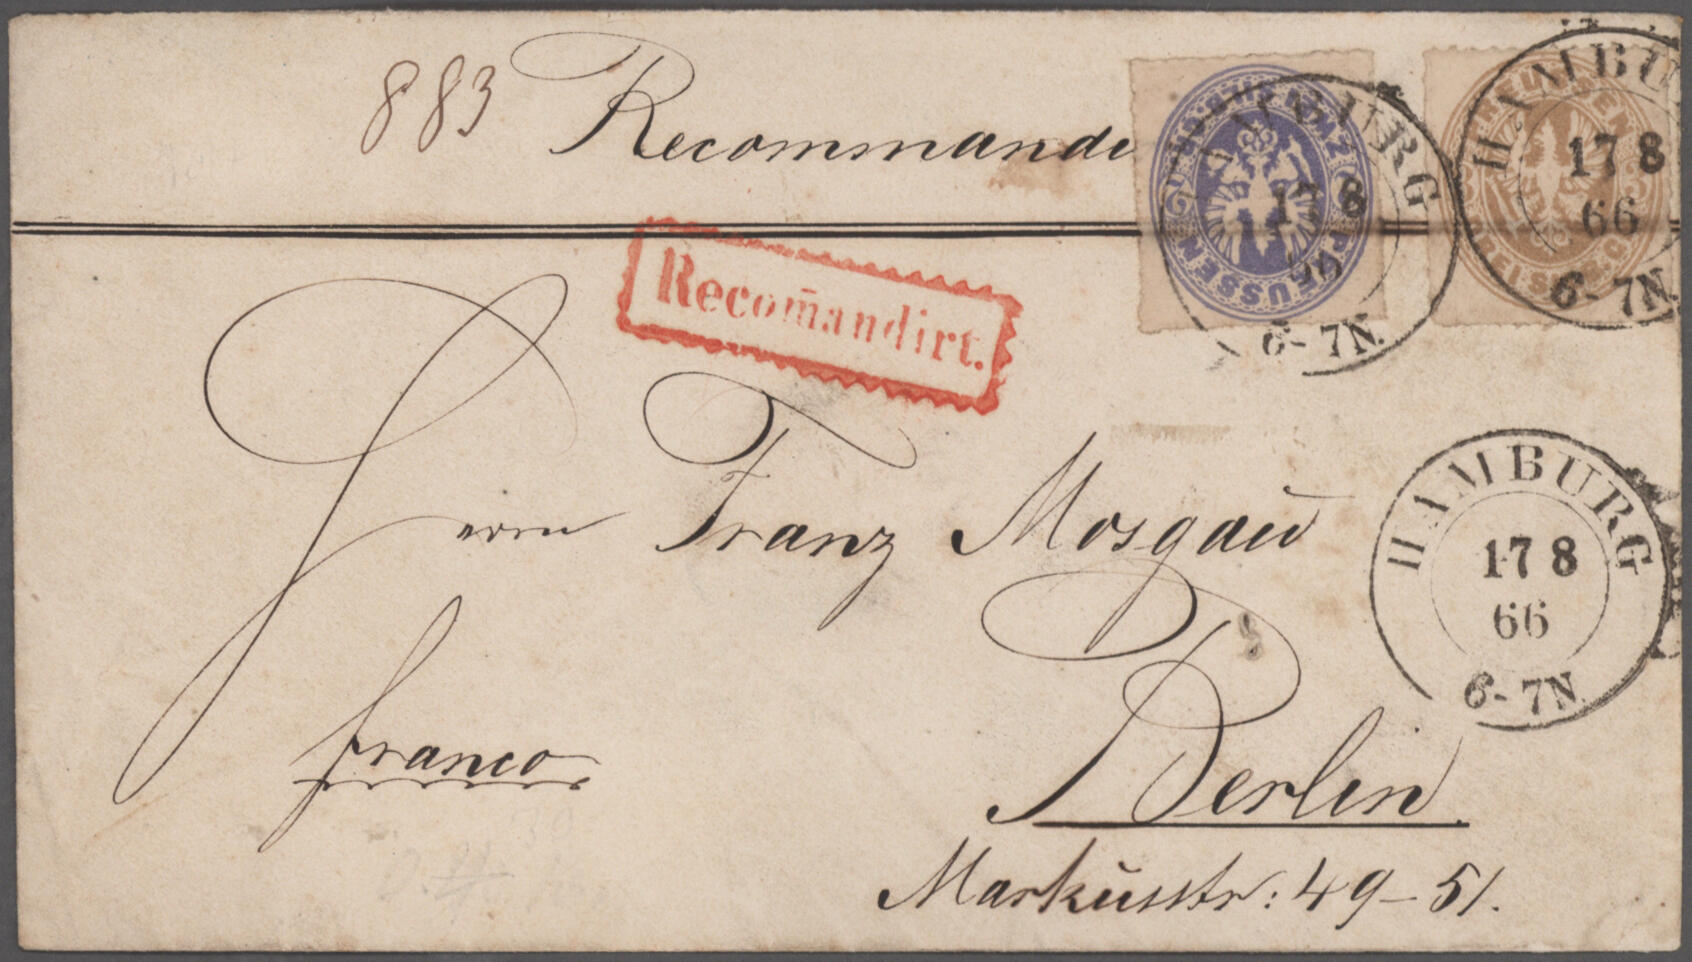 883 Recommandi
Recom̄andirt.
HAMBURG
17 8
66
6-7N.
HAMBURG
17 8
66
6-7N.
Herrn Franz Mosgau
HAMBURG
17 8
66
6-7N.
franco
Berlin.
Markusstr: 49-51.